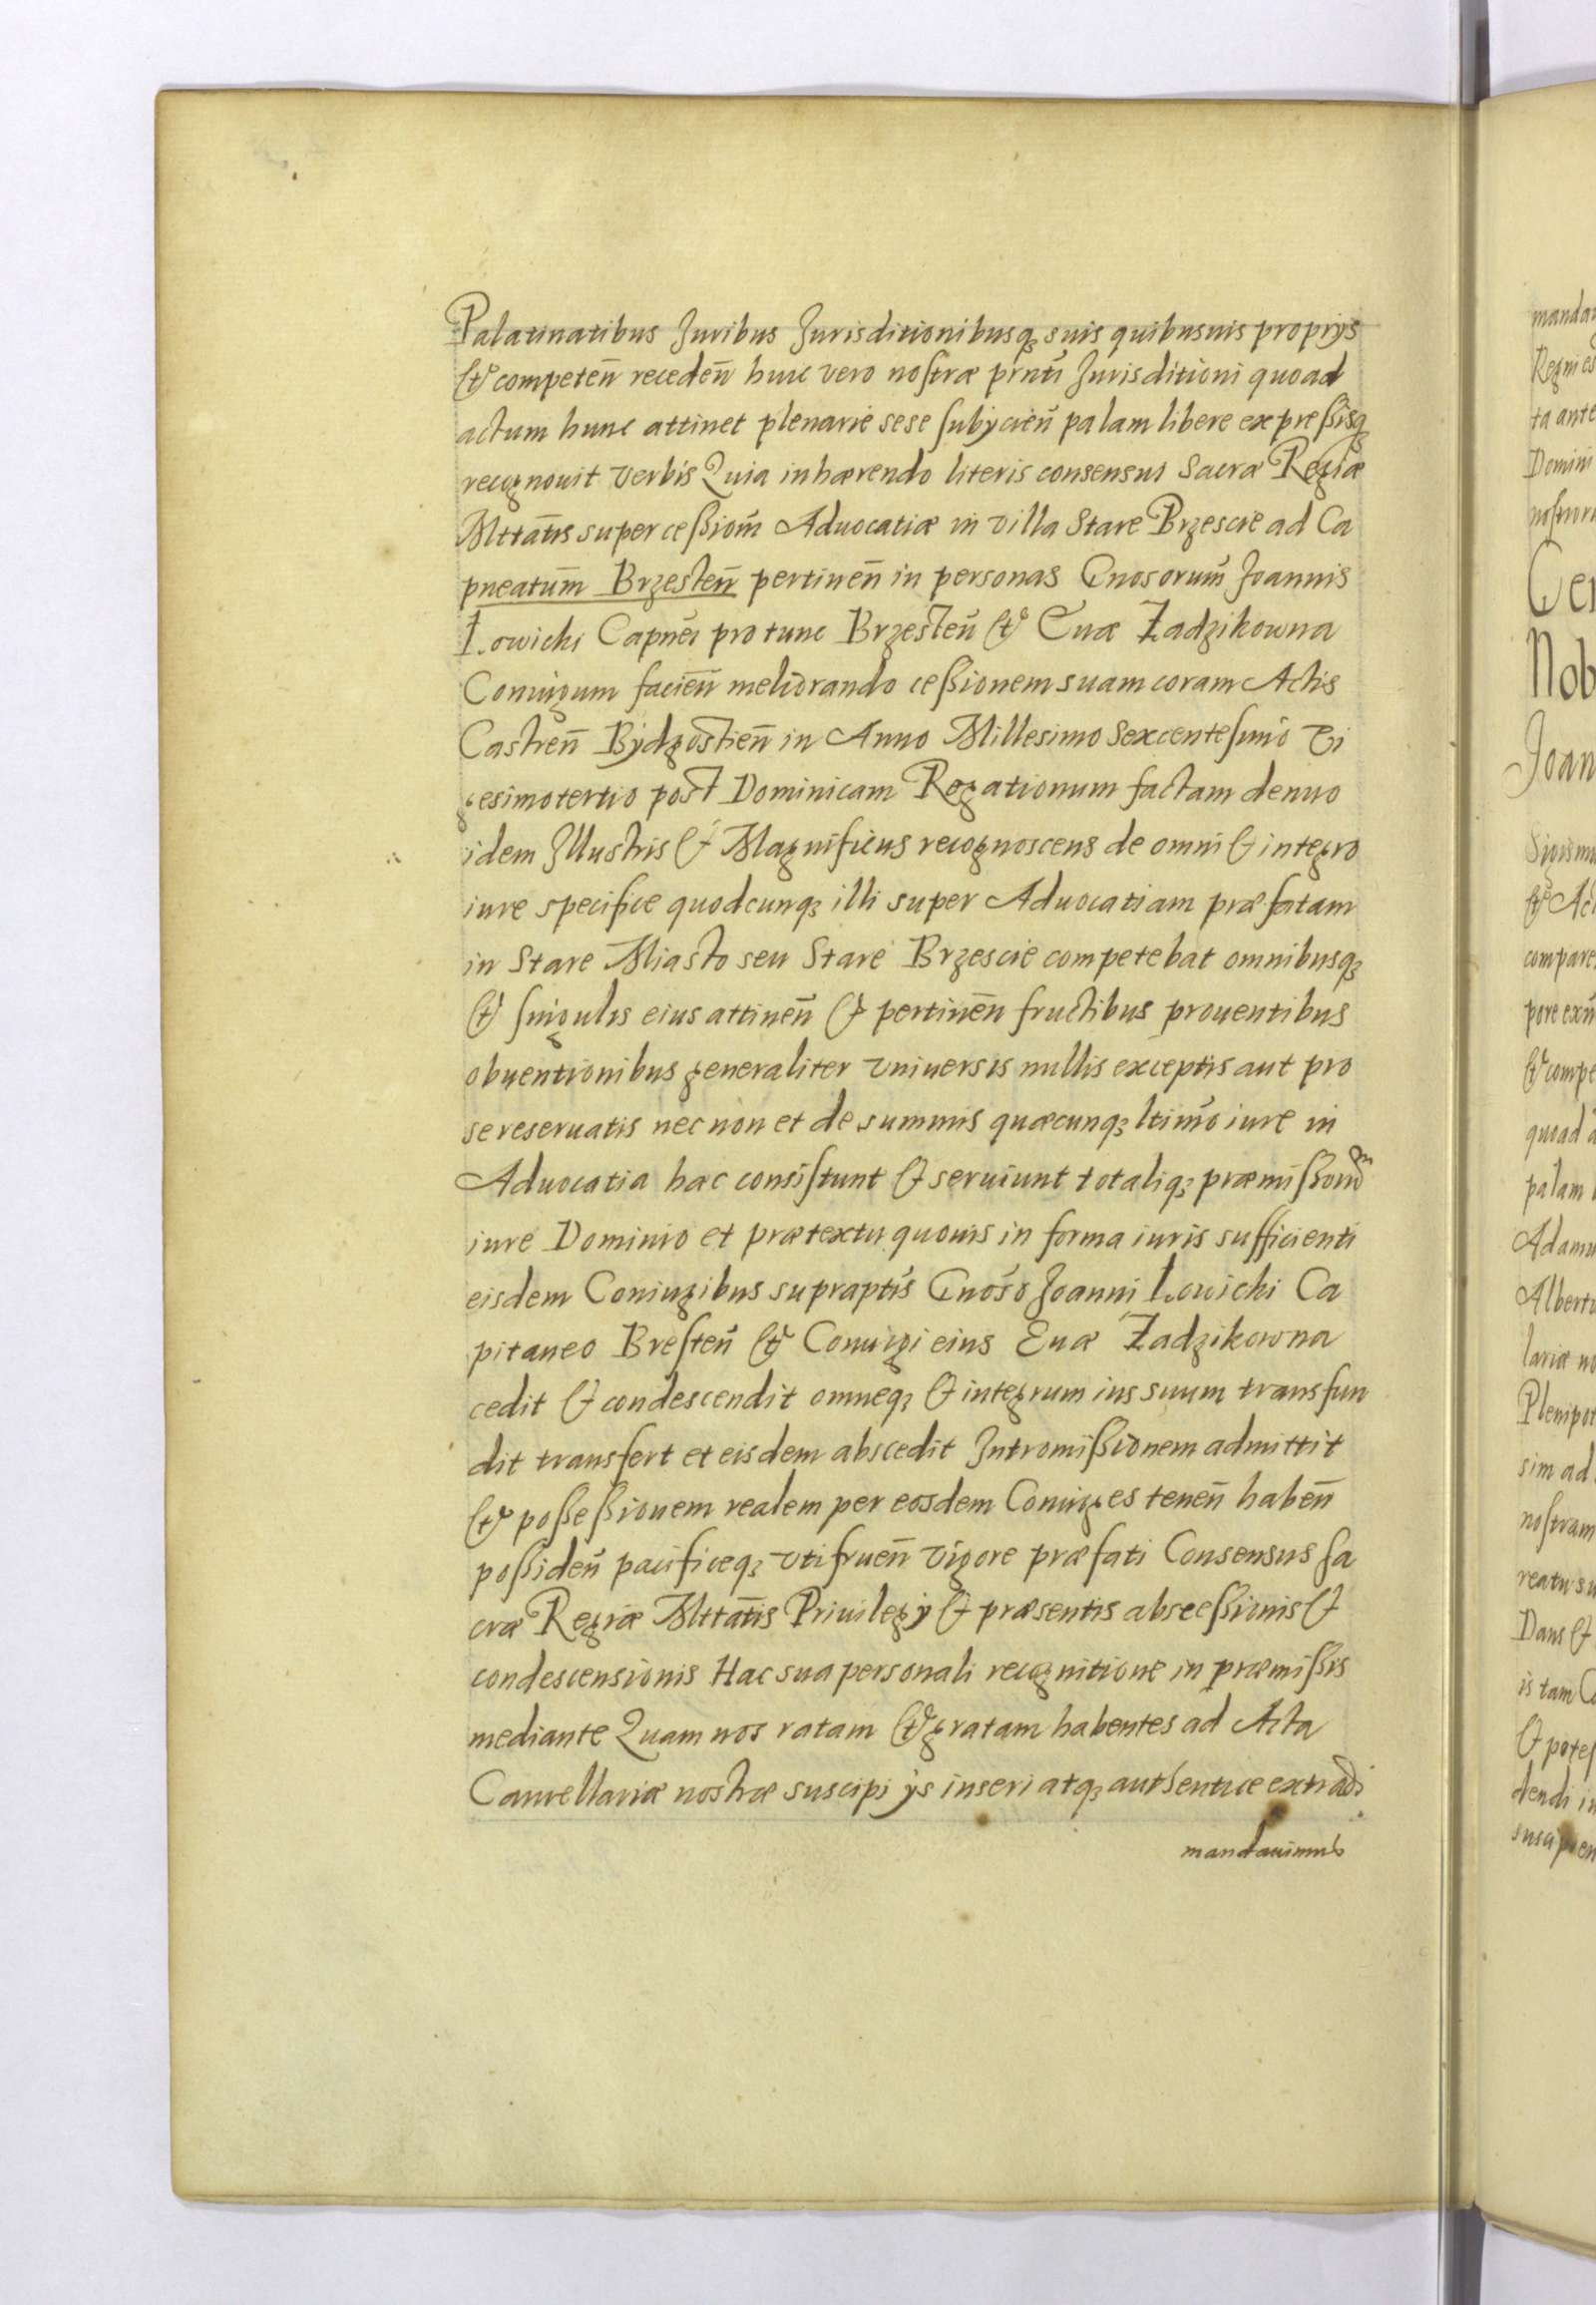 Palatinatibus Juribus Jurisditionibusq suis quibusuis proprys
et competen̄ receden̄ huic vero nostræ prn̄ti Jurisditioni quoad
actum hunc attinet plenarie sese subycien̄ palam libere expressisq
recognouit verbis Quia inhærendo literis consensus Sacræ Regiæ
Mttātis super cessiom̄ Aduocatiæ in villa Stare Brzescie ad Ca
pneatum̄ Brzesten̄ pertinen̄ in personas Gnosorum̄ Joannis
Łowicki Capnei protunc Brzesten̄ et Euæ Zadzikowna
Coniugum facien̄ meliorando cessionem suam coram Actis
Castren̄ Bydgostien̄ in Anno Millesimo Sexcentesimo Vi
gesimotertio post Dominicam Rogationum factam denuo
idem Jllustris et Magnificus recognoscens de omni et integro
iure specifice quodcunq illi super Aduocatiam præfatam
in Stare Miasto seu Stare Brzescie competebat omnibusq
et singulis eius attinen̄ et pertinen̄ fructibus prouentibus
obuentionibus generaliter vniuersis nullis exceptis aut pro
se reseruatis nec non et de summis quæcunq ltimo iure in
Aduocatia hac consistunt et seruiunt totaliq præmissorum
iure Dominio et prætextu quouis in forma iuris sufficienti
eisdem Coniugibus supraptis Gnoso Joanni Łowicki Ca
pitaneo Bresten̄ et Coniugi eius Euæ Zadzikowna
cedit et condescendit omneq et integrum ius suum transfun
dit transfert et eisdem abscedit Jntromissionem admittit
et possessionem realem per eosdem Coniuges tenen̄ haben̄
possiden̄ pacificeq vtifruen̄ vigore præfati Consensus Sa
cræ Regiæ Mttātis Priuilegy et præsentis abscessionis et
condescensionis Hac sua personali recognitione in præmissis
mediante Quam nos ratam et gratam habentes ad Acta
Cancellariæ nostræ suscipi ys inseri atq authentice extradi
mandauimus
mandau
Regni
ta ante
Domini
Nob
Joan
Sigismu
compare
quoad
palam
Adamu
Albertu
Plenipot
sim ad
nostram
reatu su
Dans et
is tam
dendi in